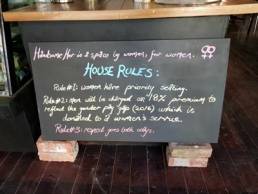 Handsome Her is a space by women, for women.
House Rules:
Rule #1: women have priority seating.
Rule #2: men will be charged an 18% premium to
reflect the gender pay gap (2016) which is
donated to a women's service.
Rule #3: respect goes both ways.